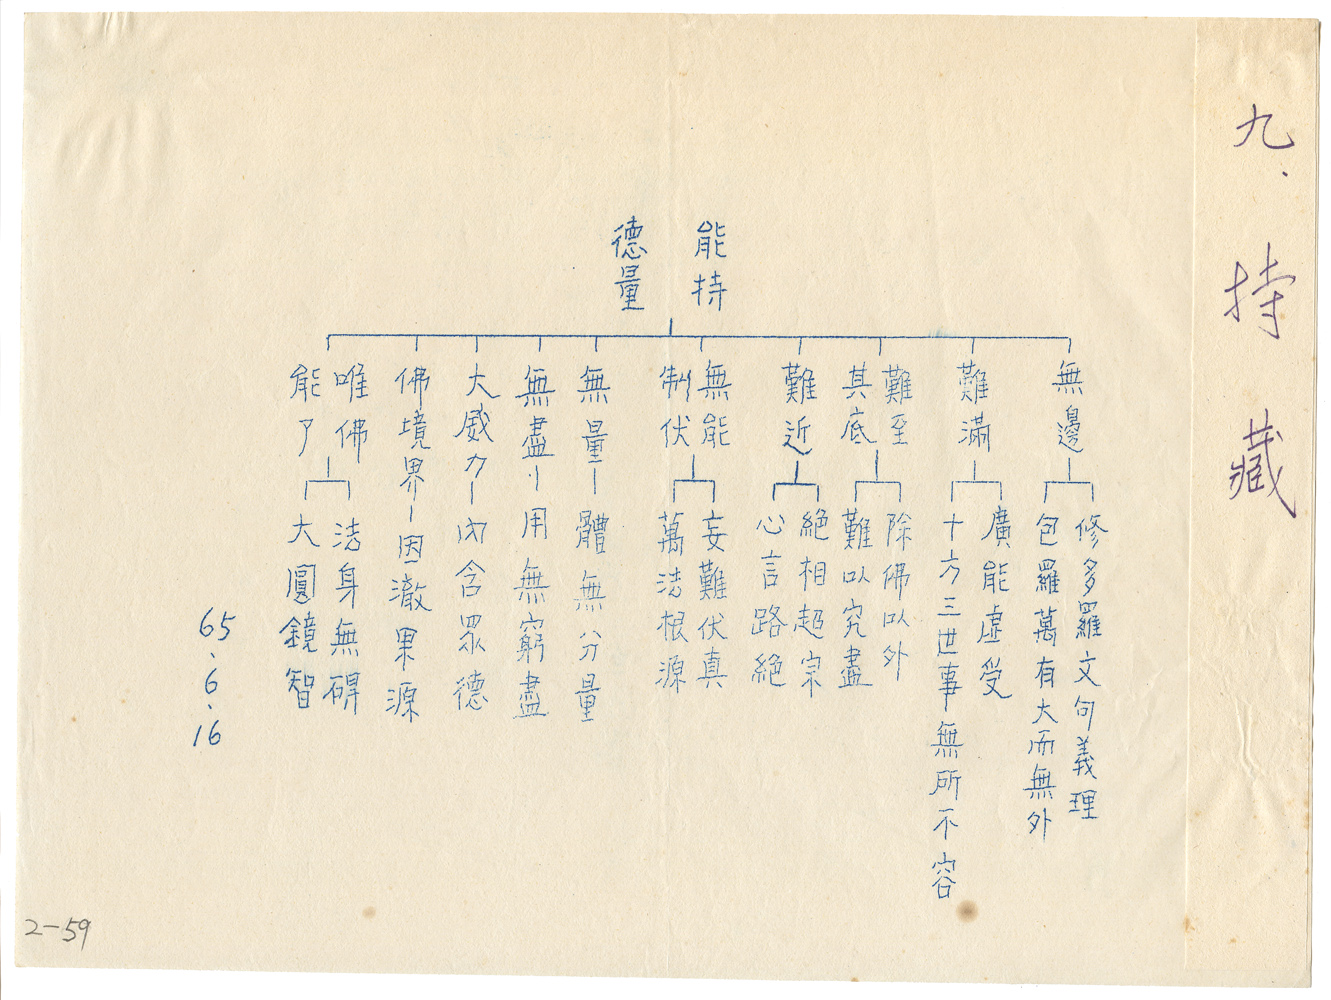 九．持藏
能持
德量
無邊
修多羅文句義理
包羅萬有大而無外
難滿
廣能虛受
十方三世事無所不容
難至
其底
除佛以外
難以究盡
難近
絕相超宗
心言路絕
無能
制伏
妄難伏真
萬法根源
無量－體無分量
無盡－用無窮盡
大威力－內含眾德
佛境界－因澈果源
唯佛
能了
法身無碍
大圓鏡智
65.6.16
2-59